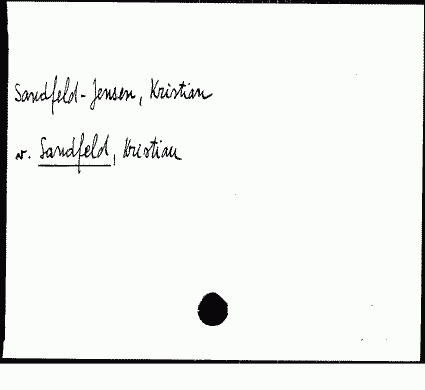 Sandfeld-Jensen, Kristian
v. Sandfeld, Kristian